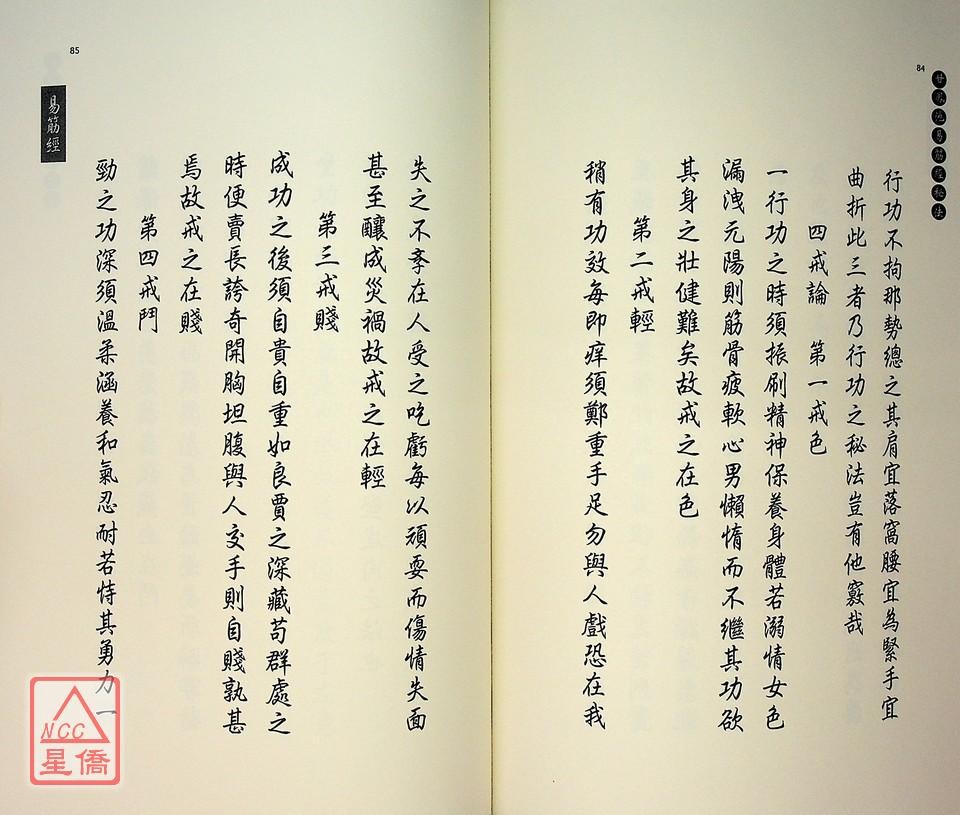 84
甘泉池易筋經秘法
行功不拘那勢總之其肩宜落窩腰宜為緊手宜
曲折此三者乃行功之秘法豈有他竅哉
四戒論　第一戒色
一行功之時須振刷精神保養身體若溺情女色
漏洩元陽則筋骨疲軟心男懶惰而不繼其功欲
其身之壯健難矣故戒之在色
第二戒輕
稍有功效每即痒須鄭重手足勿與人戲恐在我
失之不孝在人受之吃虧每以頑耍而傷情失面
甚至釀成災禍故戒之在輕
第三戒賤
成功之後須自貴自重如良賈之深藏苟群處之
時便賣長誇奇開胸坦腹與人交手則自賤孰甚
焉故戒之在賤
第四戒鬥
勁之功深須溫柔涵養和氣忍耐若恃其勇力一
易筋經
85
NCC
星僑